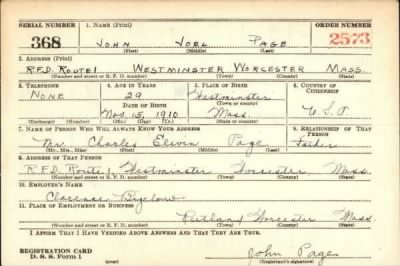 SERIAL NUMBER 1. NAME (Print) ORDER NUMBER
368 JOHN JOEL PAGE 2573
(First) (Middle) (Last)
2. ADDRESS (Print)
R.F.D. ROUTE 1 WESTMINSTER WORCESTER MASS.
(Number and street or R. F. D. number) (Town) (County) (State)
3. TELEPHONE 4. AGE IN YEARS 5. PLACE OF BIRTH 6. COUNTRY OF CITIZENSHIP
NONE 29 Westminster
DATE OF BIRTH (Town or county)
Nov. 15, 1910 Mass. U.S.A.
(Exchange) (Number) (Mo.) (Day) (Yr.) (State or country)
7. NAME OF PERSON WHO WILL ALWAYS KNOW YOUR ADDRESS 8. RELATIONSHIP OF THAT PERSON
Mr. Charles Page Father
(Mr., Mrs., Miss) (First) (Middle) (Last)
9. ADDRESS OF THAT PERSON
R.F.D. Route 1 Westminster Worcester Mass.
(Number and street or R. F. D. number) (Town) (County) (State)
10. EMPLOYER'S NAME
Clarence Bigelow
11. PLACE OF EMPLOYMENT OR BUSINESS
Rutland Worcester Mass
(Number and street or R. F. D. number) (Town) (County) (State)
I AFFIRM THAT I HAVE VERIFIED ABOVE ANSWERS AND THAT THEY ARE TRUE.
John Page
REGISTRATION CARD
D. S. S. Form 1 (Registrant's signature)